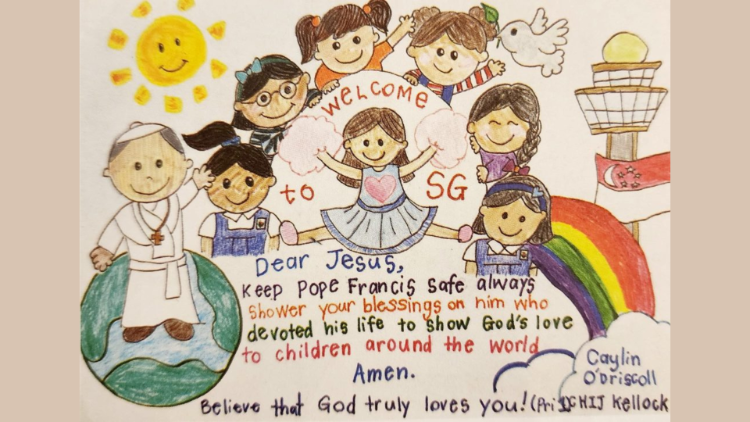 WELCOME
to SG
Dear Jesus,
Keep Pope Francis safe always
Shower your blessings on him who
devoted his life to show God's love
to children around the world
Amen.
Caylin
O'Driscoll
Believe that God truly loves you! (Pri 1) CHIJ Kellock